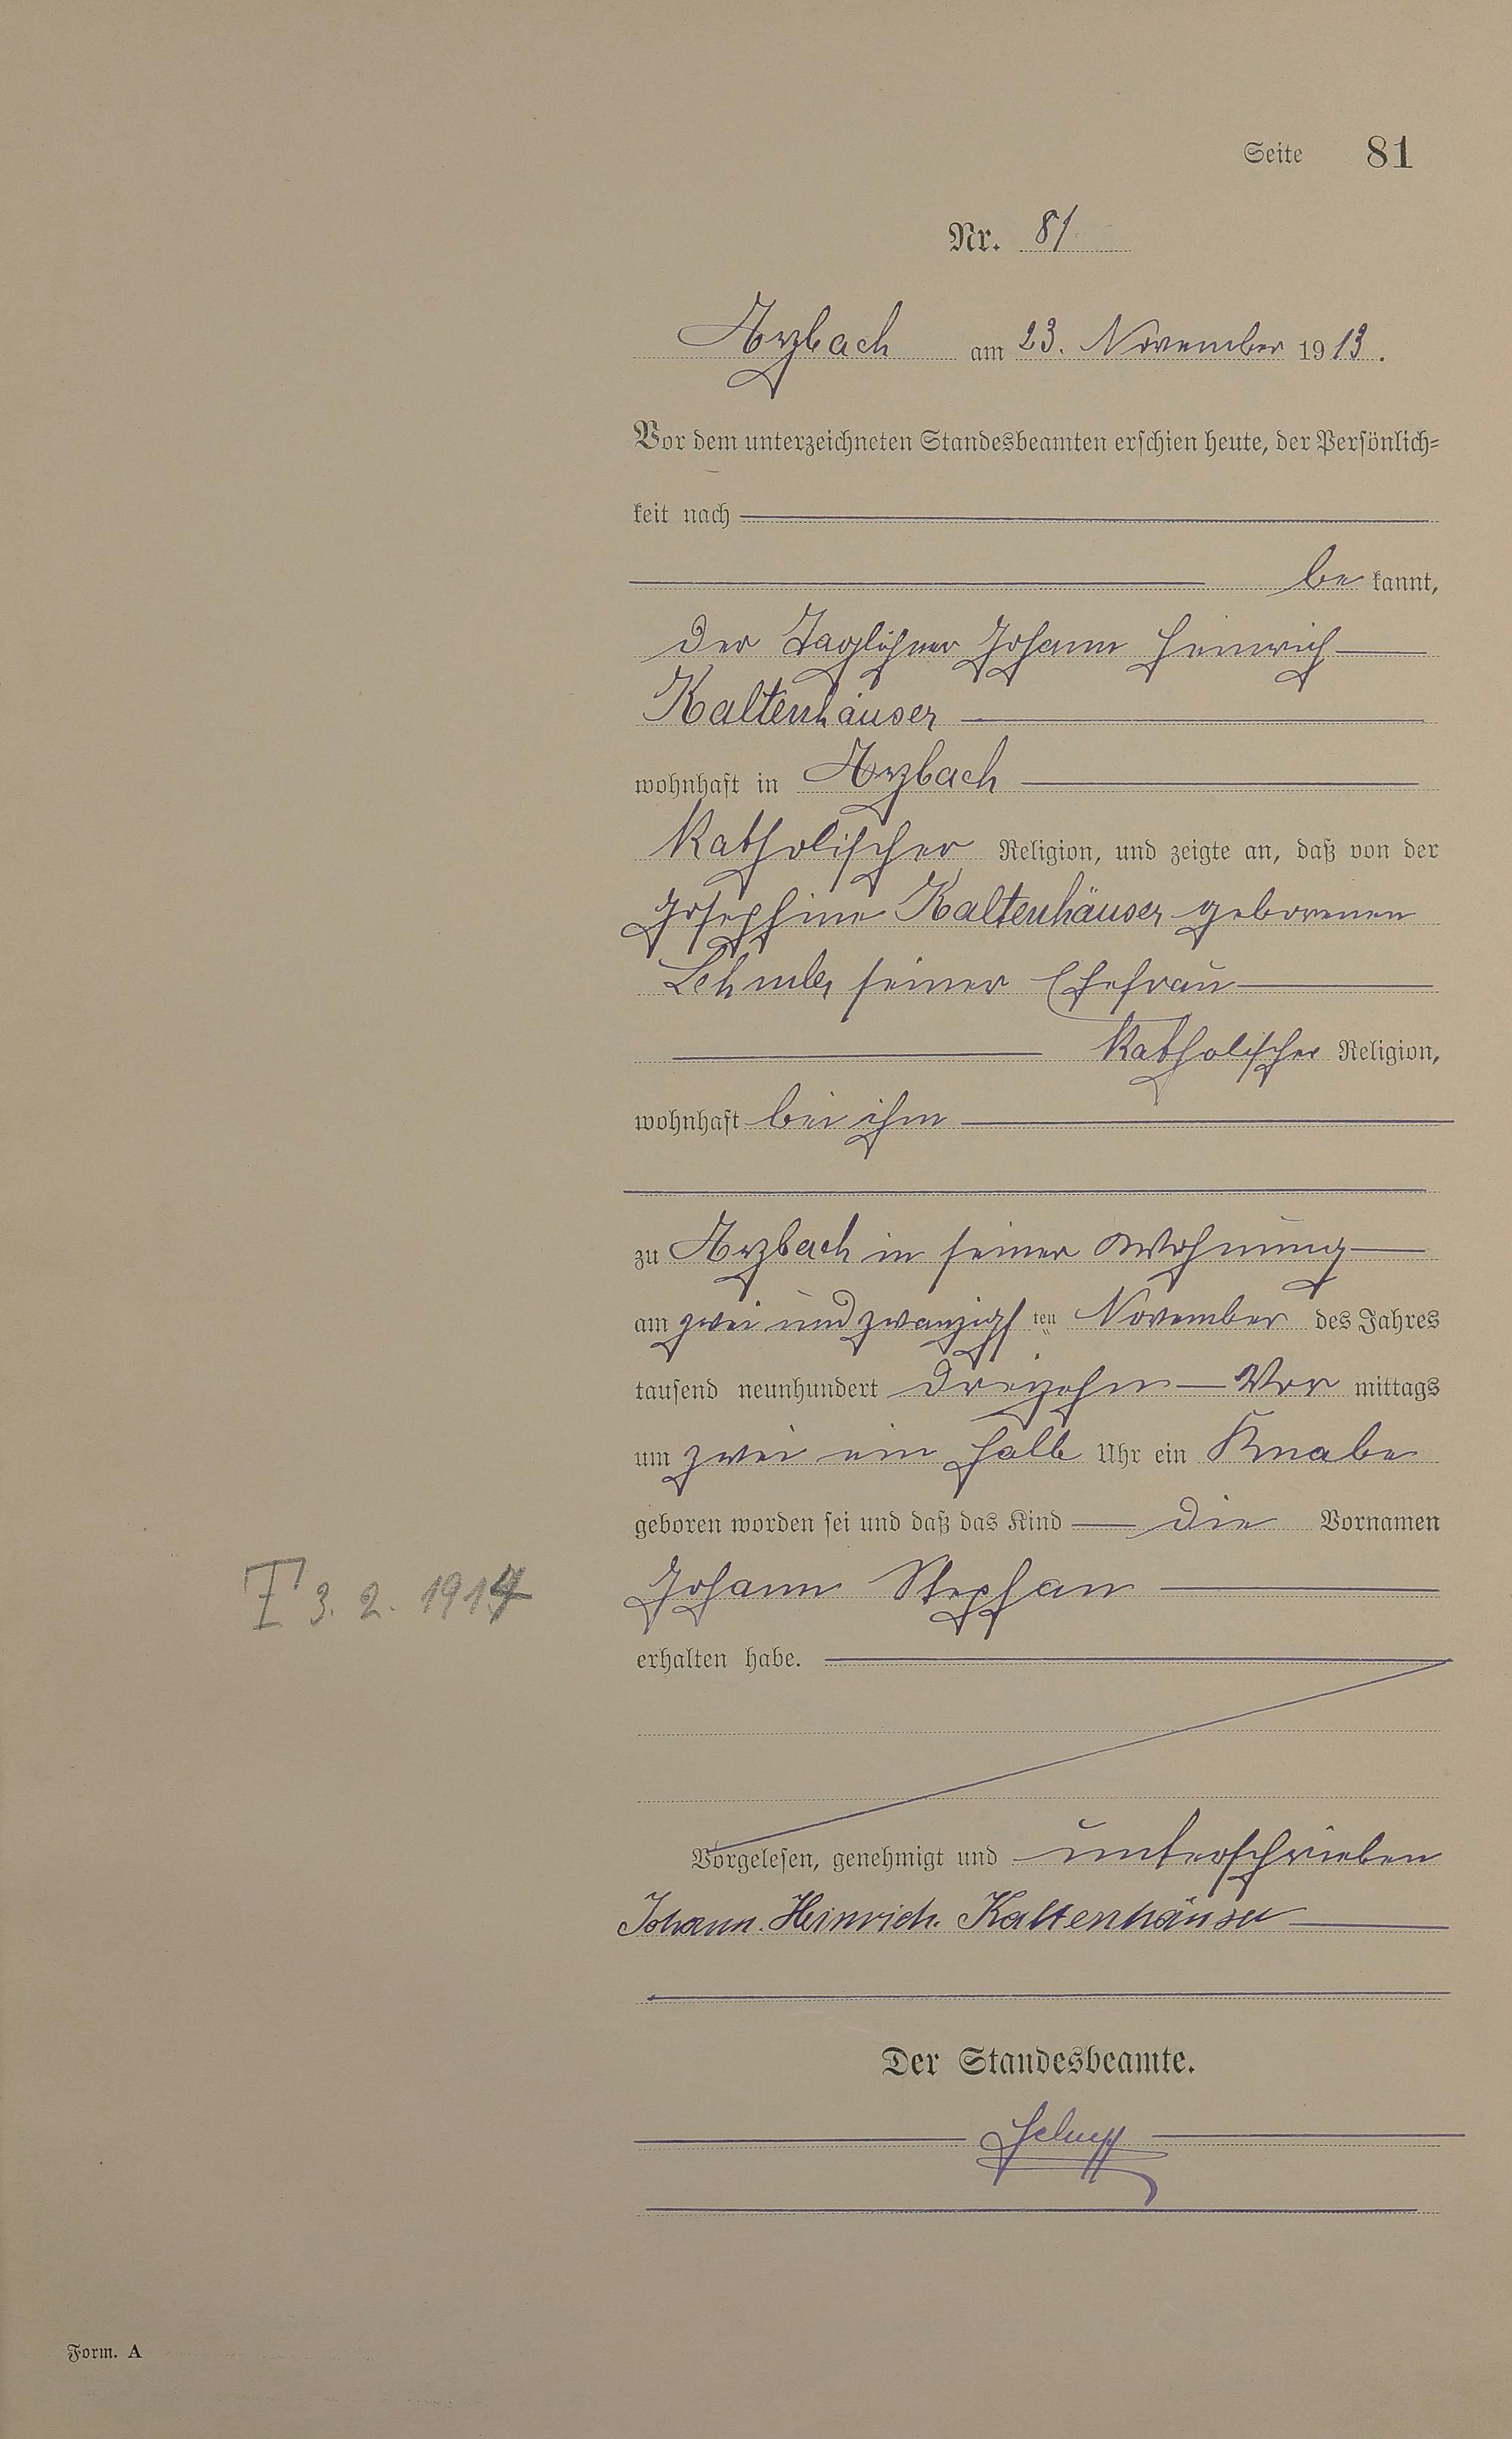 Seite 81
Nr. 81
Arzbach am 23. November 1913.
Vor dem unterzeichneten Standesbeamten erschien heute, der Persönlich=
keit nach
be kannt,
der Taglöhner Johann Heinrich
Kaltenhäuser
wohnhaft in Arzbach
katholischer Religion, und zeigte an, daß von der
Josephine Kaltenhäuser geborenen
seiner Ehefrau
katholischer Religion,
wohnhaft bei ihm
zu Arzbach in seiner Wohnung
am zwei und zwanzigs ten November des Jahres
tausend neunhundert dreizehn Vor mittags
um zwei ein halb Uhr ein Knabe
geboren worden sei und daß das Kind die Vornamen
I 3. 2. 1914
Johann Stephan
erhalten habe.
Vorgelesen, genehmigt und unterschrieben
Johann Heinrich Kaltenhäuser
Der Standesbeamte.
Form. A